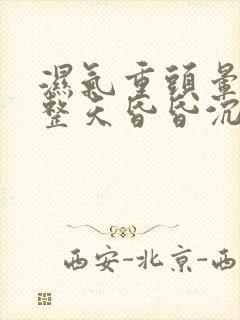 濕氣重頭暈
整天昏昏沉
西安-北京-西